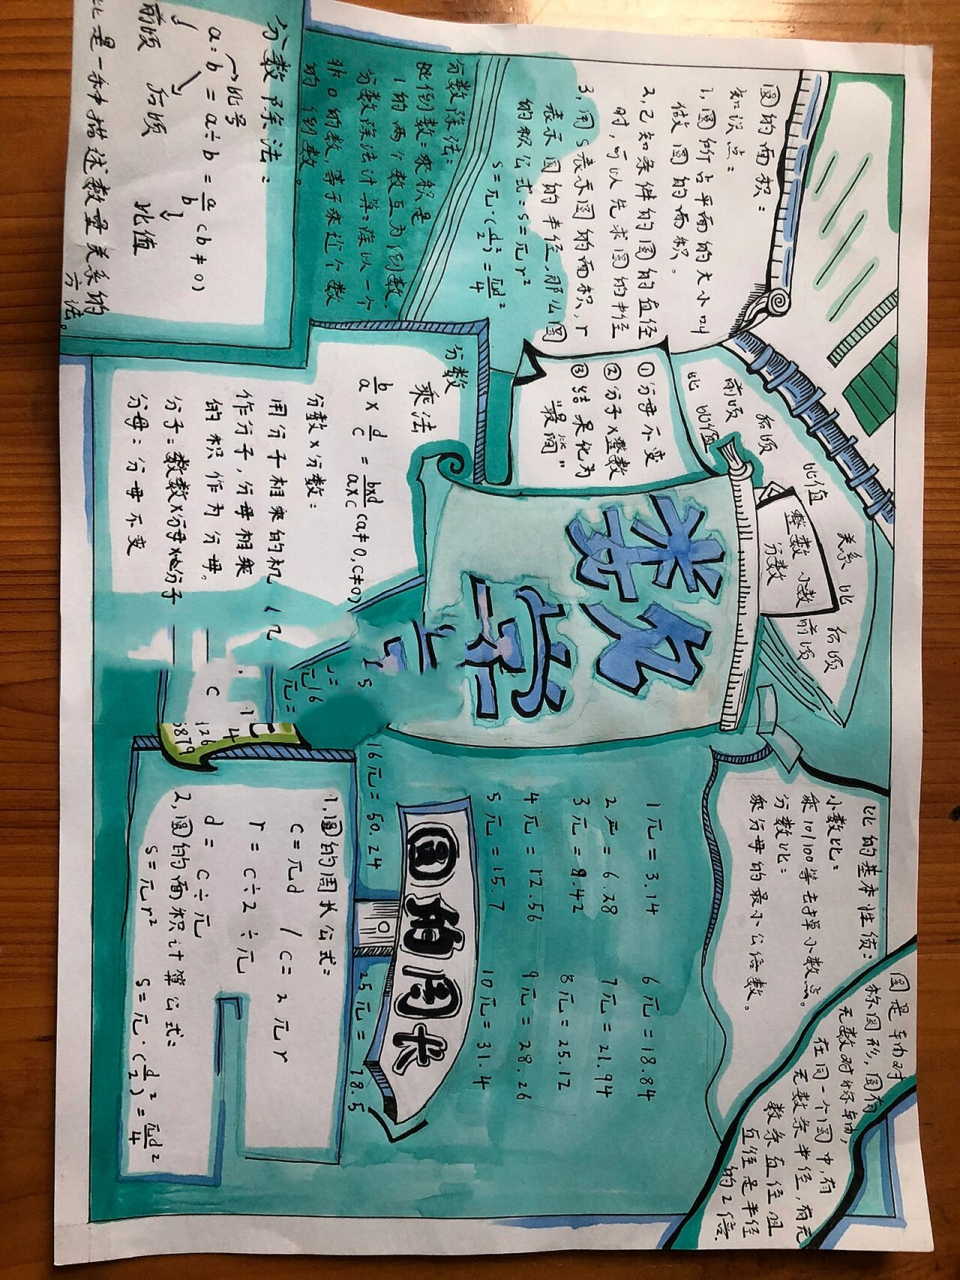 圆的面积：
知识点：
1,圆所占平面的大小叫
做圆的面积。
2,已知条件的圆的直径
时,可以先求圆的半径
3,用S表示圆的面积,r
表示圆的半径,那么圆
的积公式:S=元r²
S=元·(d/2)²=元d²/4
分数除法:
比倒数:乘积是
1的两个数互为倒数
分数除法计算:除以一个
非0的数,等于乘这个数
的倒数。
分数除法:
比号
a:b=a÷b=a/b(b≠0)
前项 后项 比值
比是一种描述数量关系的
方法。
①分母不变
②分子×整数
③结果化为
"最简"
前项 后项 比值 关系 比 后项
比 比值
整数 小数 前项
分数
数学
分数
乘法
b/a×d/c=b×d/a×c(a≠0,c≠0)
分数×分数:
用分子相乘的积
作分子,分母相乘
的积作为分母。
分母:分母不变
比的基本性质:
小数比:
乘10/100等去掉小数点。
分数比:
乘分母的最小公倍数。
圆是轴对
称图形,圆有
无数对称轴,
在同一个圆中,有
无数条半径,有无
数条直径且
直径是半径
的2倍.
1元=3.14 6元=18.84
2元=6.28 7元=21.94
3元=9.42 8元=25.12
4元=12.56 9元=28.26
5元=15.7 10元=31.4
圆的周长
16元=50.24
5元= 78.5
1.圆的周长公式:
C=元d / C=2元r
r=C÷2÷元
d=C÷元
2,圆的面积计算公式:
S=元r² S=元·(d/2)²=元d²/4